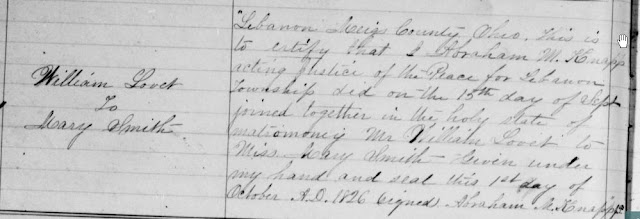 William Lovet
to
Mary Smith
Lebanon Meigs County, Ohio, This is
to certify that I Abraham M. Knapp
acting Justice of the Peace for Lebanon
Township did on the 15th day of Sept
joined together in the holy state of
matrimoney Mr William Lovet to
Miss Mary Smith Given under
my hand and seal this 1st day of
October A.D. 1826 Signed Abraham M. Knapp